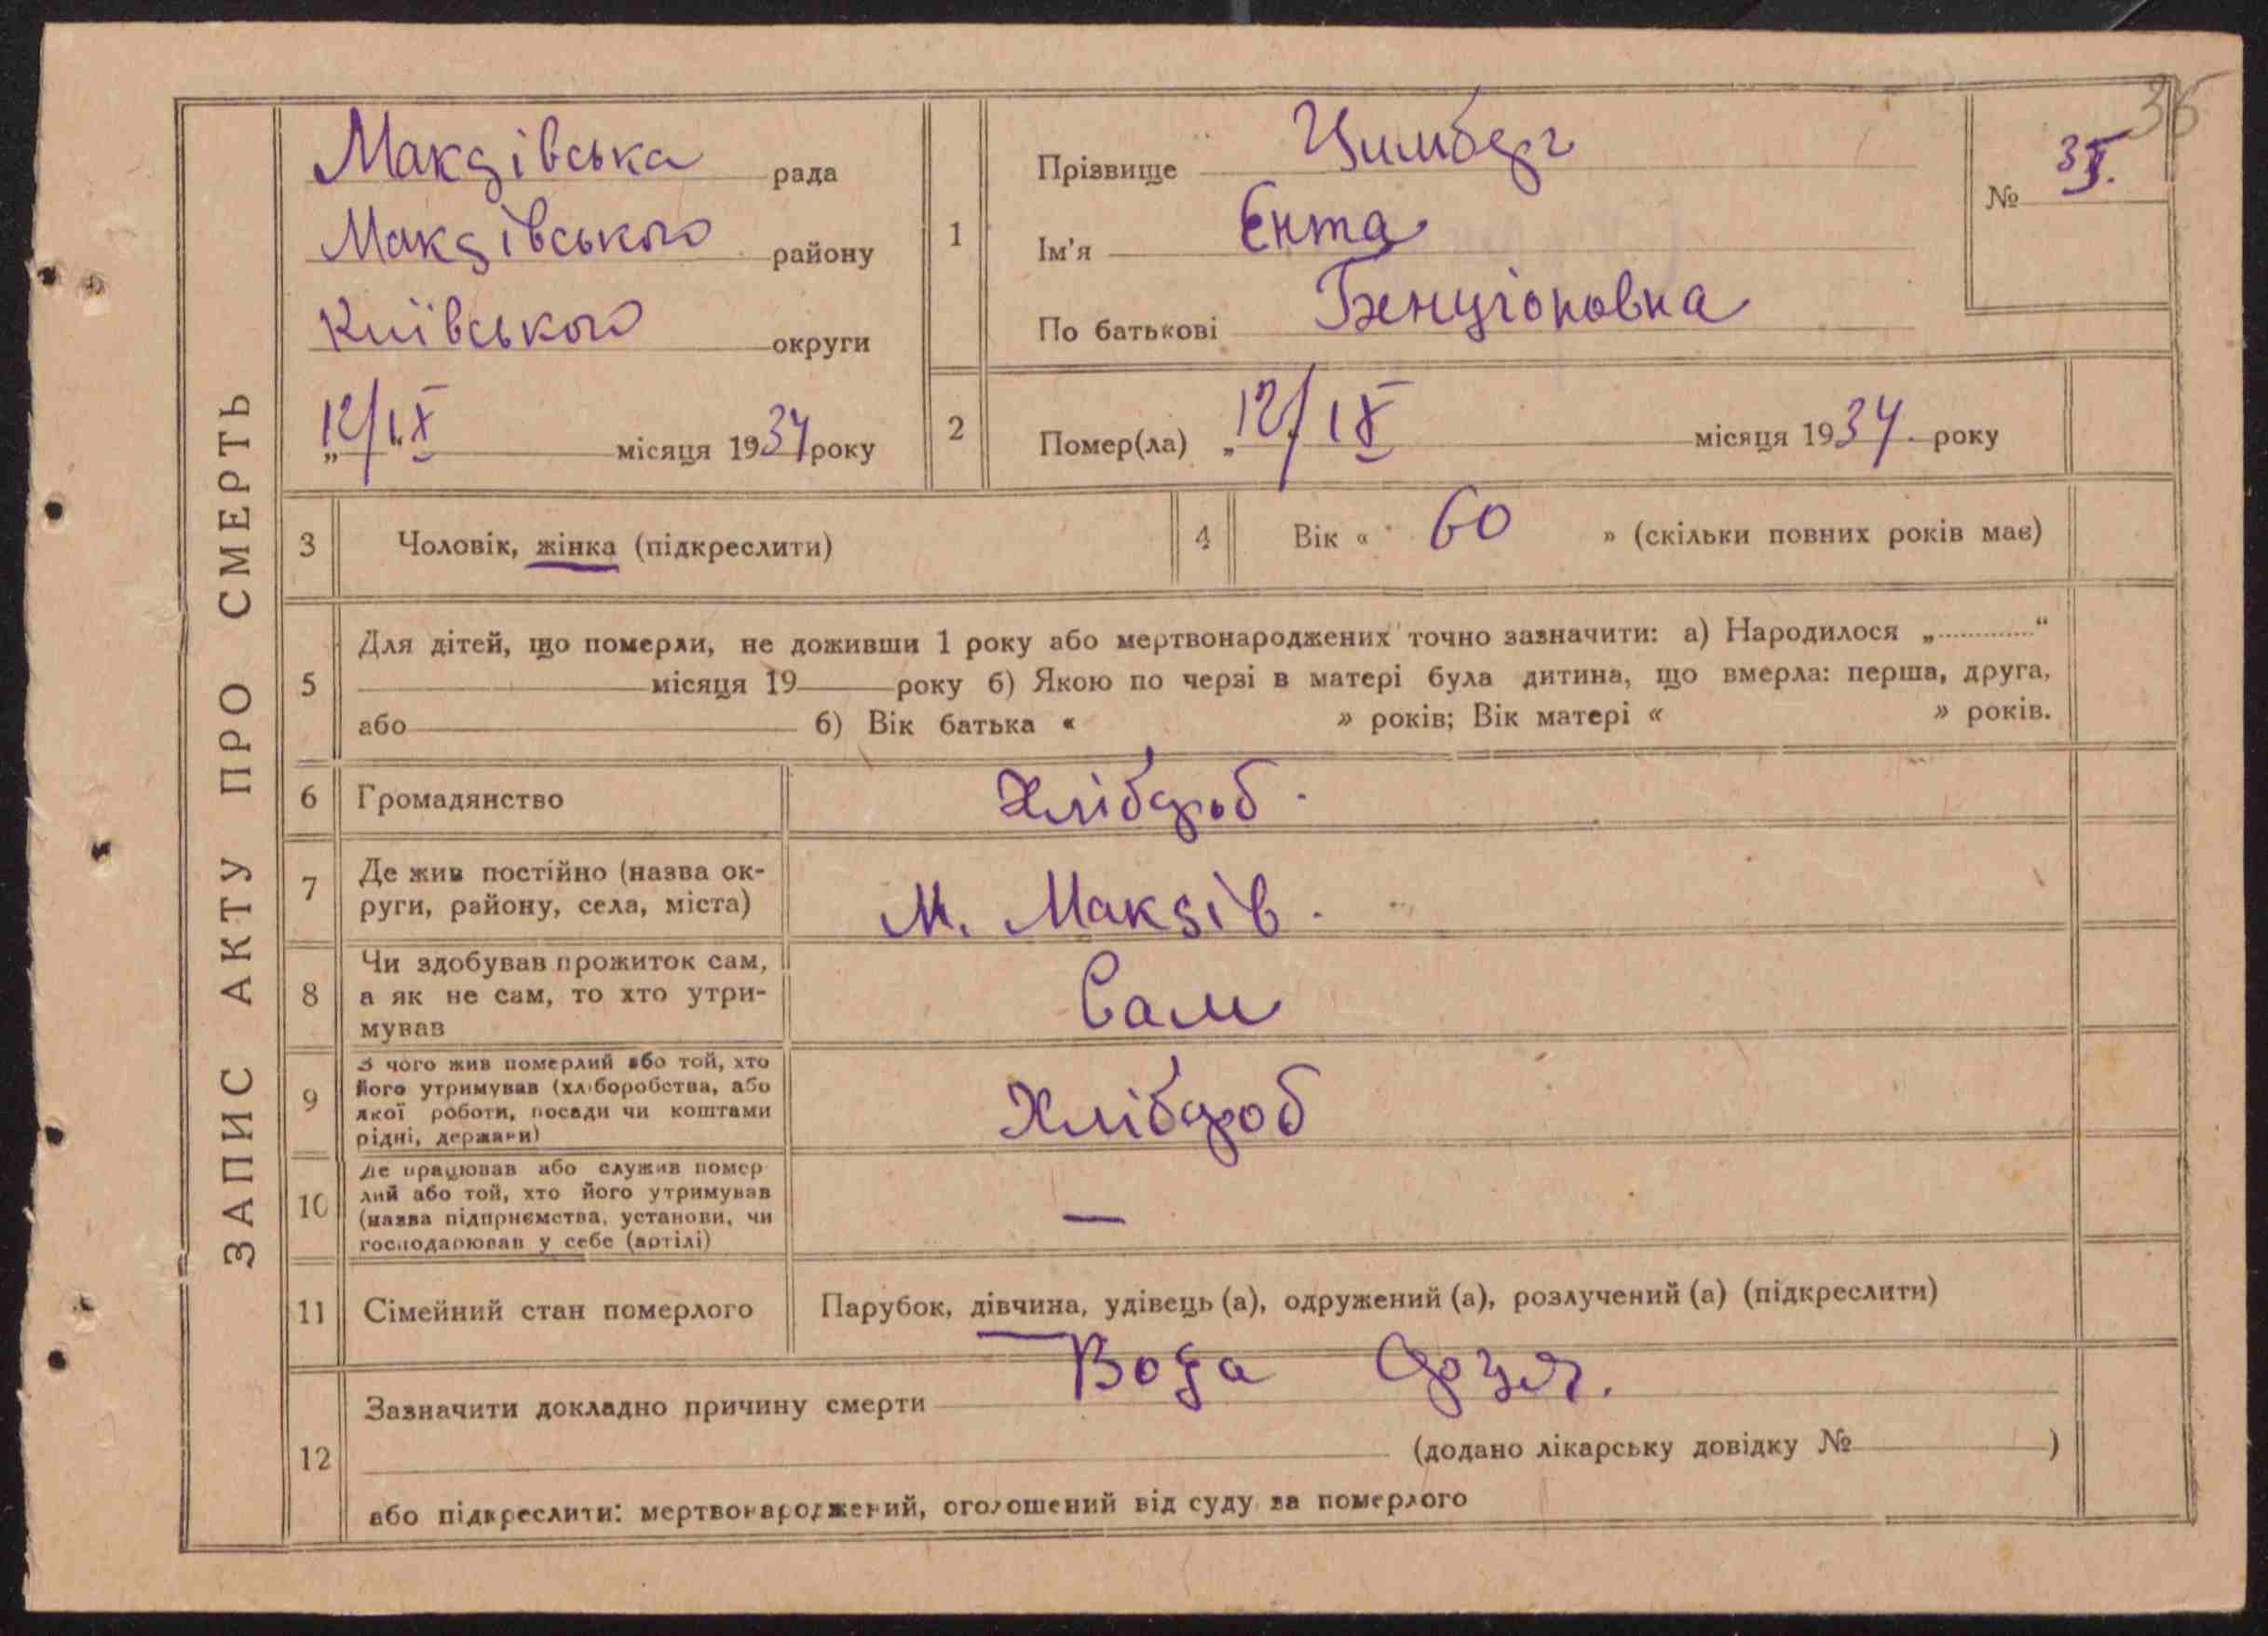 ЗАПИС АКТУ ПРО СМЕРТЬ
Макарівська рада
Макарівського району
Київського округи
„12/IX“ місяця 1934 року
1
Прізвище Цимберг
Ім'я Єнта
По батькові Бенціоновна
№ 35.
35
2
Помер(ла) „12/IX місяця 1934. року
3 Чоловік, жінка (підкреслити)
4 Вік « 60 » (скільки повних років має)
5
Для дітей, що померли, не доживши 1 року або мертвонароджених точно зазначити: а) Народилося „............“
місяця 19 року б) Якою по черзі в матері була дитина, що вмерла: перша, друга,
або б) Вік батька « » років; Вік матері « » років.
6 Громадянство Хлібороб.
7 Де жив постійно (назва ок-
руги, району, села, міста) М. Макарів.
8 Чи здобував прожиток сам,
а як не сам, то хто утри-
мував Сам
9 З чого жив померлий або той, хто
його утримував (хліборобства, або
якої роботи, посади чи коштами
рідні, держави) Хлібороб
10 Де працював або служив помер-
лий або той, хто його утримував
(назва підприємства, установи, чи
господарював у себе (артілі) —
11 Сімейний стан померлого Парубок, дівчина, удівець (а), одружений (а), розлучений (а) (підкреслити)
12
Зазначити докладно причину смерти
(додано лікарську довідку № )
або підкреслити: мертвонароджений, оголошений від суду за померлого